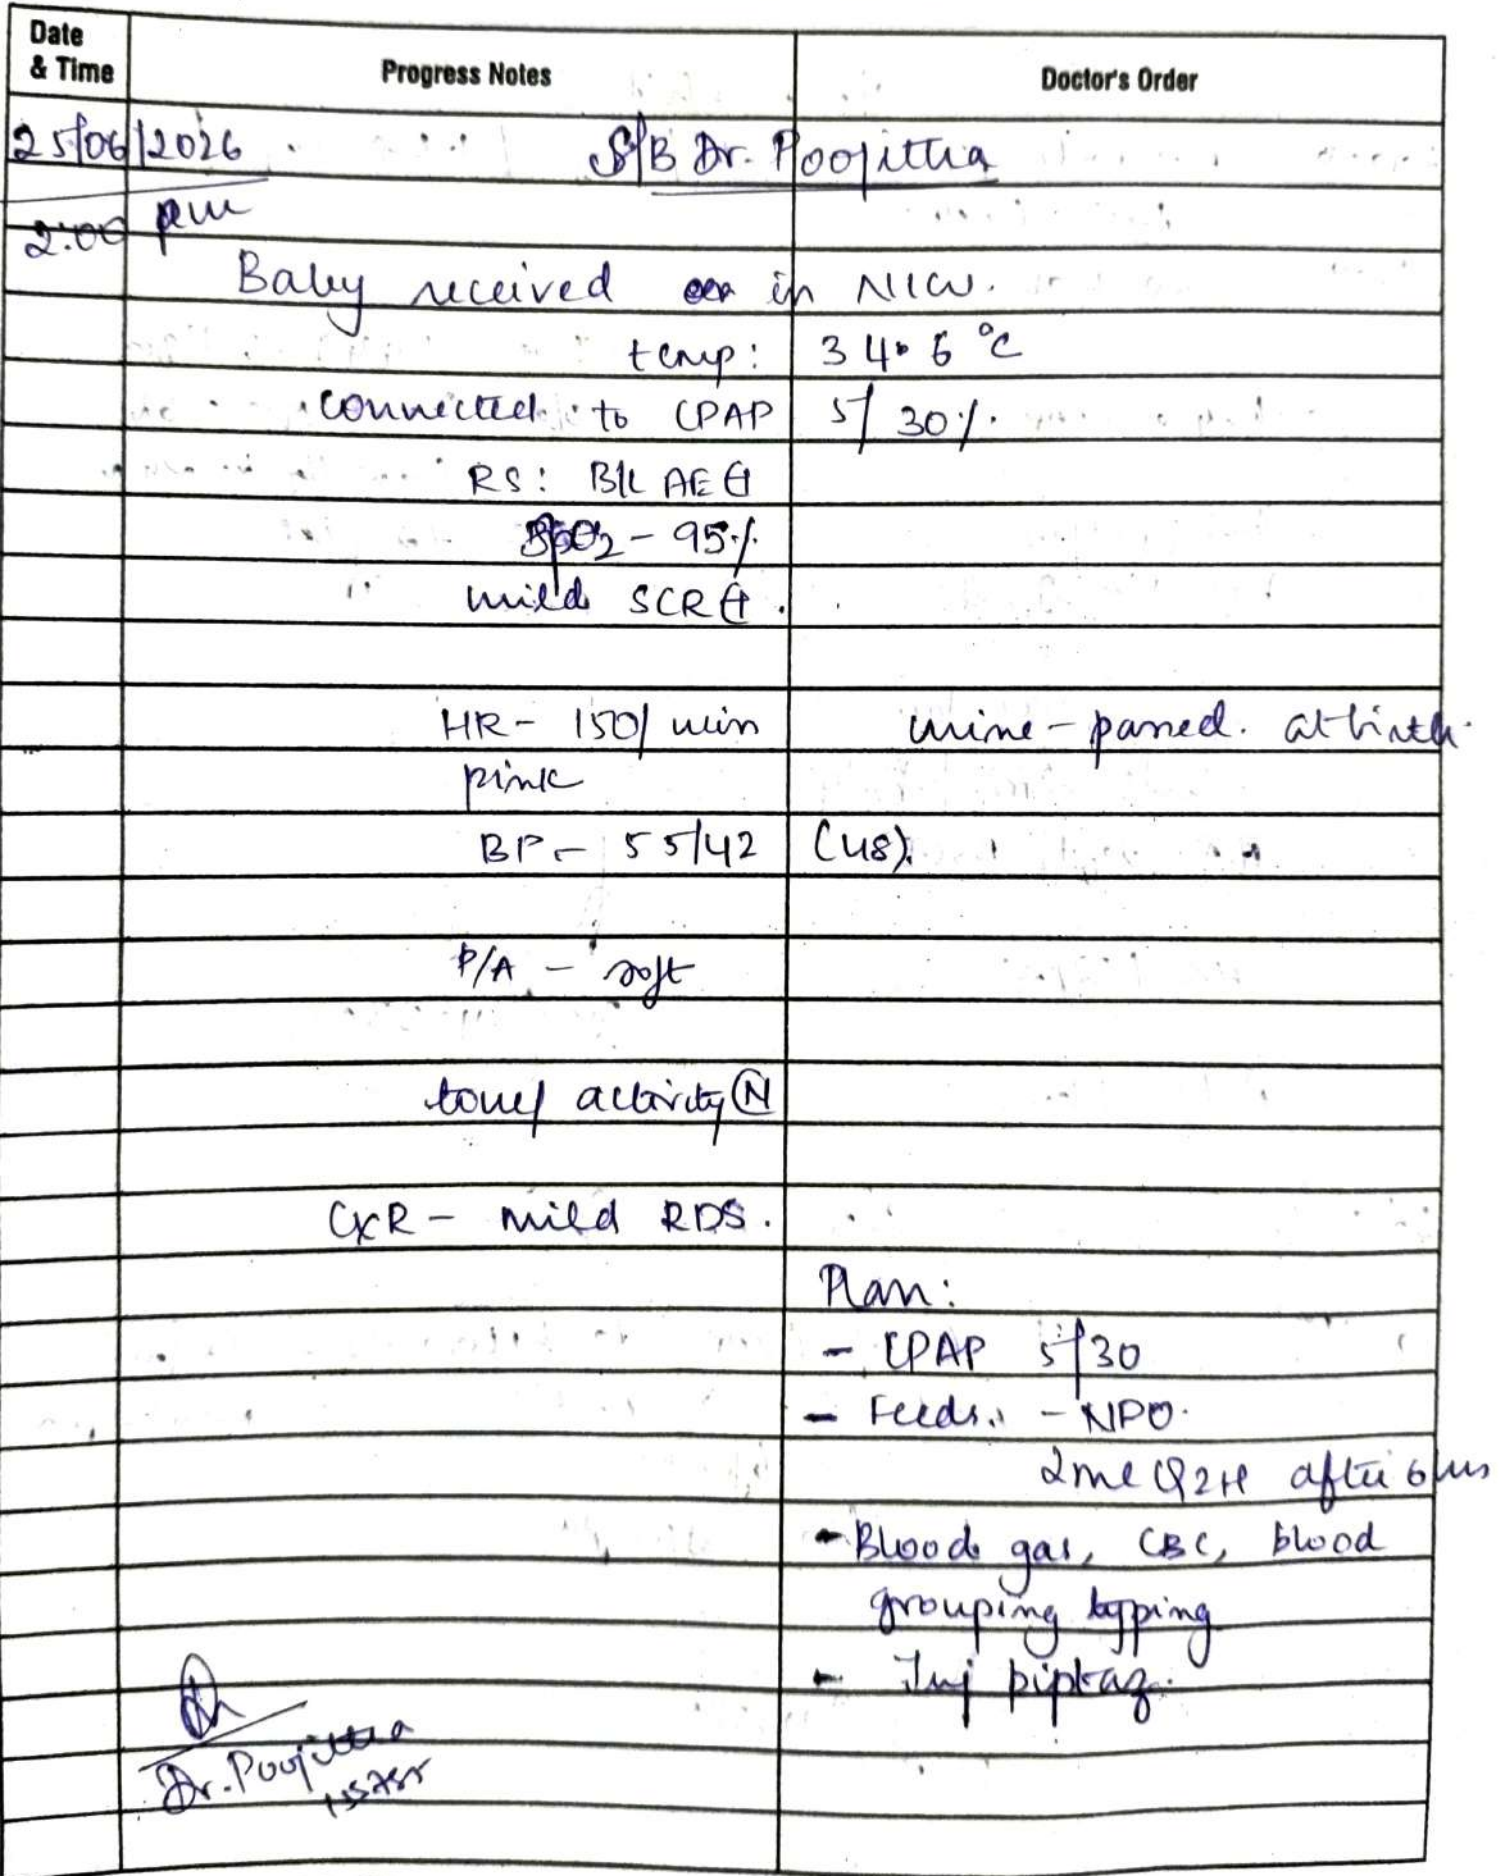 Date & Time Progress Notes Doctor's Order
25/06/2026 S/B Dr. Poojitha
2:00 pm
Baby received in NICU.
temp: 34.6 °C
connected to CPAP 5/30%.
RS: B/L AE ⊕
SpO2 - 95%
mild SCR ⊕.
HR - 150/min urine - passed. at birth.
pink
BP - 55/42 (48).
P/A - soft
tone/ activity Ⓝ
CXR - mild RDS.
Plan:
- CPAP 5/30
- Feeds. - NPO.
2ml Q2H after 6 hrs
- Blood gas, CBC, blood
grouping typing
- Inj piptaz.
Dr. Poojitha